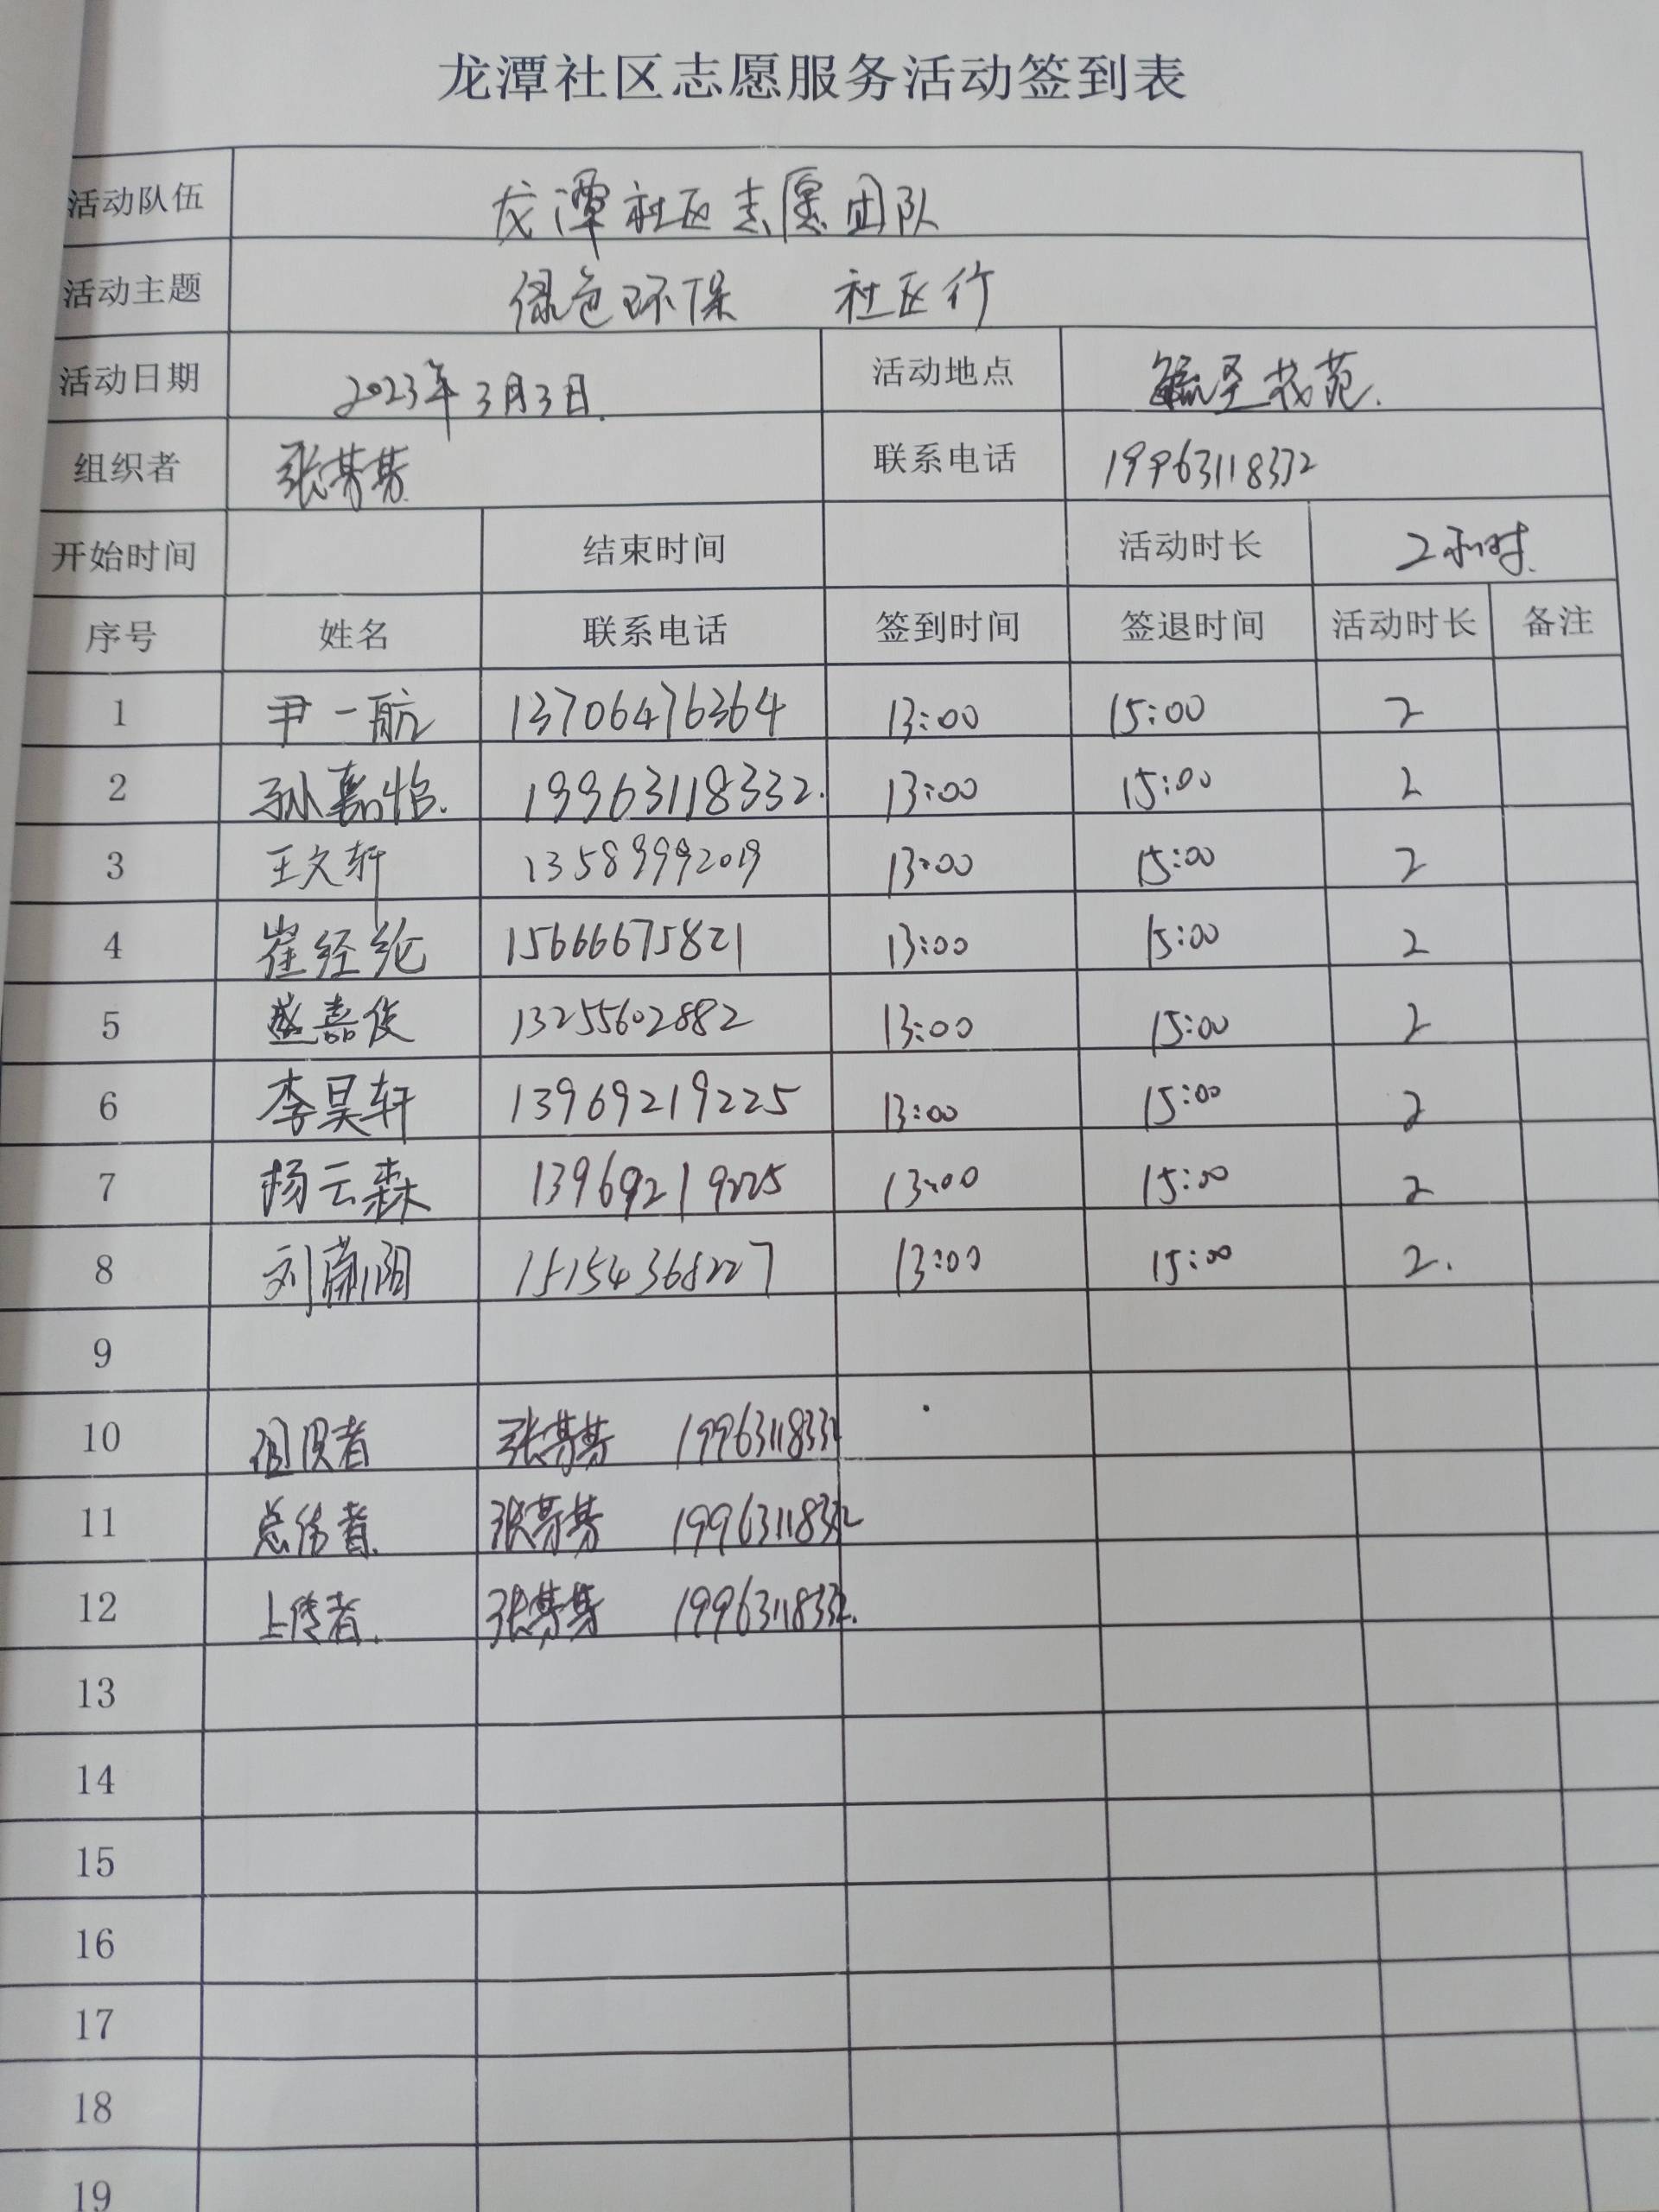 龙潭社区志愿服务活动签到表
活动队伍 龙潭社区志愿团队
活动主题 绿色环保 社区行
活动日期 2023年3月3日 活动地点
组织者 张芬芬 联系电话 19963118332
开始时间 结束时间 活动时长 2小时
序号 姓名 联系电话 签到时间 签退时间 活动时长 备注
1 尹一航 13706476364 13:00 15:00 2
2 孙嘉怡 19963118332 13:00 15:00 2
3 王文轩 13589992019 13:00 15:00 2
4 崔经纶 15666675821 13:00 15:00 2
5 盛嘉俊 13255602882 13:00 15:00 2
6 李昊轩 13969219225 13:00 15:00 2
7 杨云森 13969219225 13:00 15:00 2
8 刘 15154368227 13:00 15:00 2
9
10 组织者 张芬芬 19963118332
11 宣传者 张芬芬 19963118332
12 上传者 张芬芬 19963118332
13
14
15
16
17
18
19